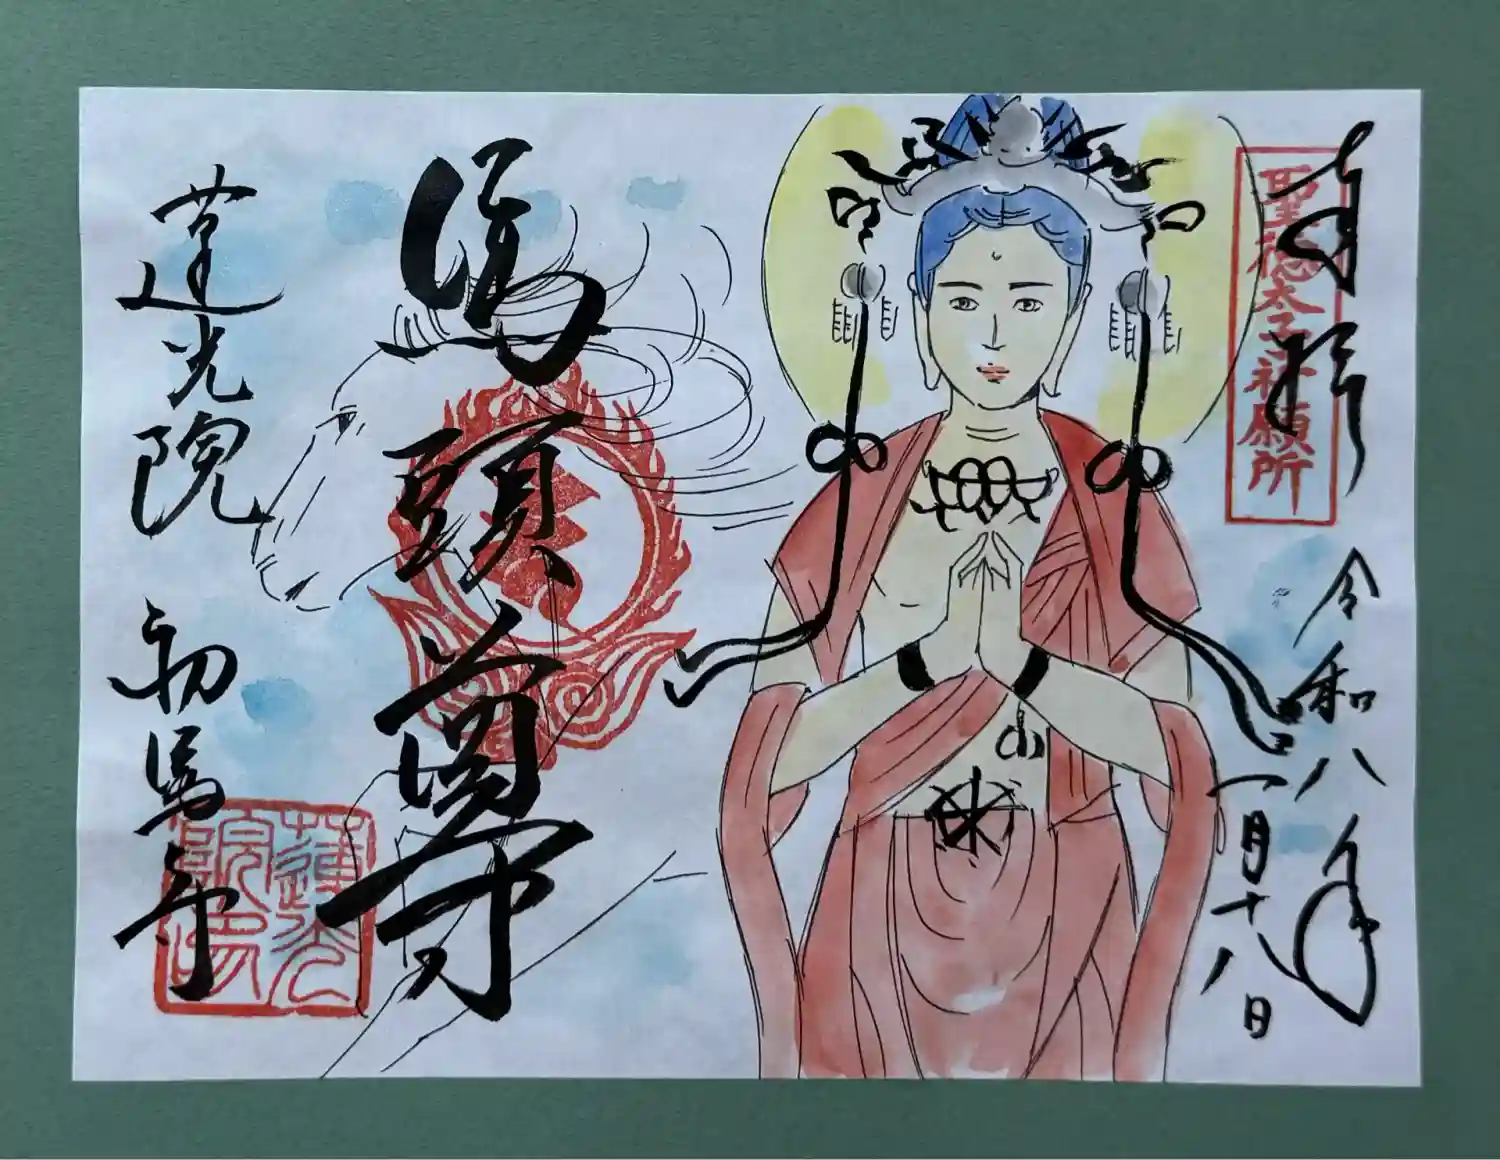 奉拝
聖徳太子祈願所
令和八年
一月十八日
馬頭尊
蓮光院
初馬寺
蓮光院印